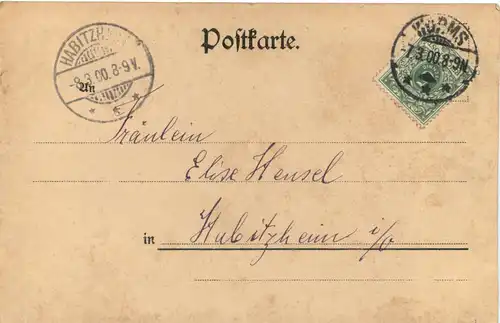 Postkarte.
HABITZH
-8.3.00.8-9V.
WORMS
-7.3.00.8-9N.
An
Fräulein
Elise Hensel
in Habitzheim i/O